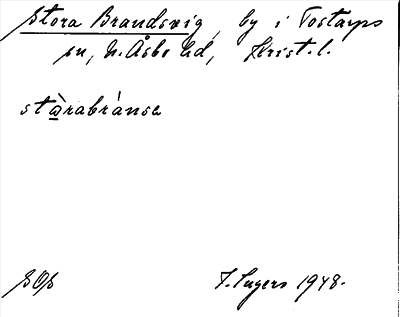 Stora Brandsvig, by i Tostarps
sn, N. Åsbo hd, Krist. l.
stàrabránse
SOS
F. Ingers 1948.